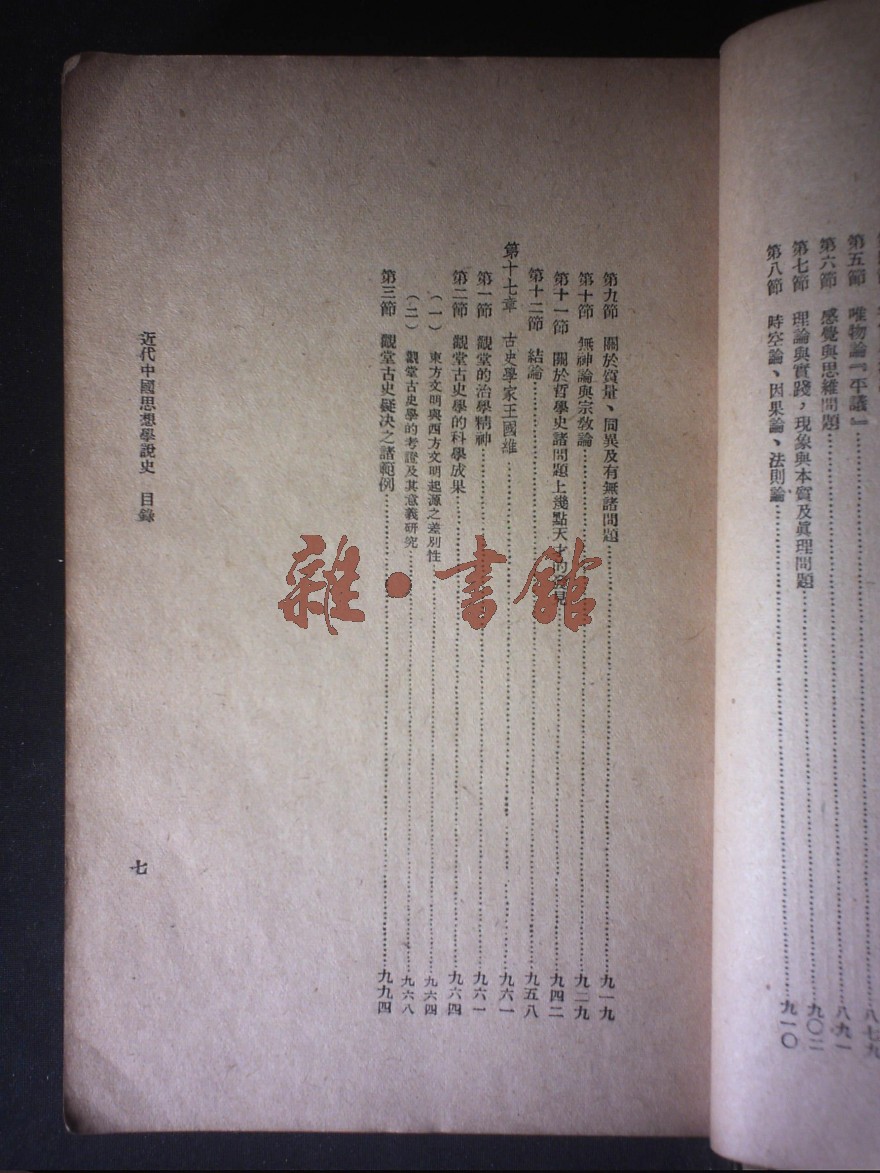 第五節　唯物論『平議』……八九一
第六節　感覺與思維問題……九〇二
第七節　理論與實踐，現象與本質及眞理問題
第八節　時空論、因果論、法則論……九一〇
第九節　關於質量、同異及有無諸問題……九一九
第十節　無神論與宗敎論……九二九
第十一節　關於哲學史諸問題上幾點天才的發見……九四二
第十二節　結論……九五八
第十七章　古史學家王國維……九六一
第一節　觀堂的治學精神……九六一
第二節　觀堂古史學的科學成果……九六四
（一）　東方文明與西方文明起源之差別性……九六四
（二）　觀堂古史學的考證及其意義硏究……九六八
第三節　觀堂古史疑决之諸範例……九九四
近代中國思想學說史　目錄
七
雜·書館